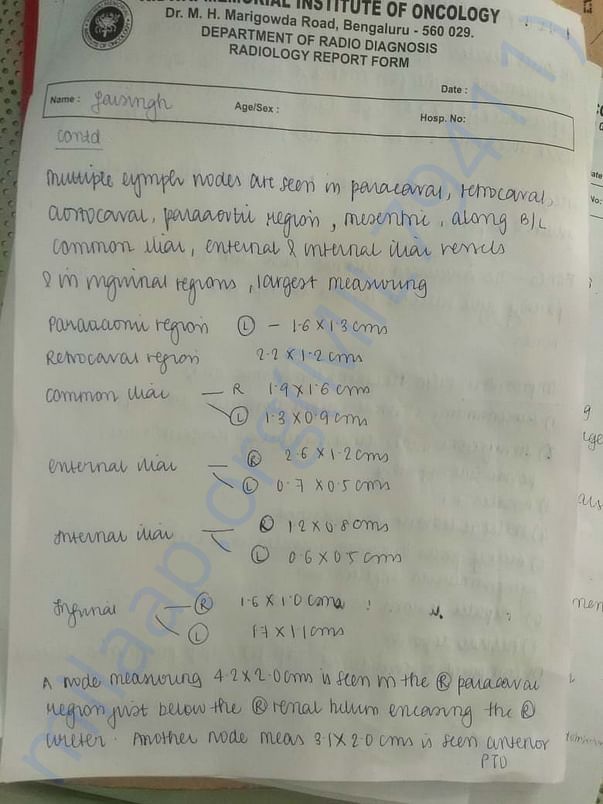 MEMORIAL INSTITUTE OF ONCOLOGY
Dr. M. H. Marigowda Road, Bengaluru - 560 029.
DEPARTMENT OF RADIO DIAGNOSIS
RADIOLOGY REPORT FORM
Date :
Name : Jaisingh Age/Sex : Hosp. No:
contd
Multiple lymph nodes are seen in paracaval, retrocaval,
aortocaval, paraaortic region, mesentric, along B/L
common iliac, external & internal iliac vessels
& in inguinal regions, largest measuring
Paraaortic region Ⓛ - 1.6 x 1.3 cms
Retrocaval region 2.2 x 1.2 cms
common iliac — R 1.9 x 1.6 cms
Ⓛ 1.3 x 0.9 cms
external iliac — Ⓡ 2.6 x 1.2 cms
Ⓛ 0.7 x 0.5 cms
Internal iliac — Ⓡ 1.2 x 0.8 cms
Ⓛ 0.6 x 0.5 cms
Inguinal — Ⓡ 1.6 x 1.0 cms
Ⓛ 1.7 x 1.1 cms
A node measuring 4.2 x 2.0 cms is seen in the Ⓡ paracaval
region just below the Ⓡ renal hilum encasing the Ⓡ
ureter. Another node meas 3.1 x 2.0 cms is seen anterior
PTO
milaap.org